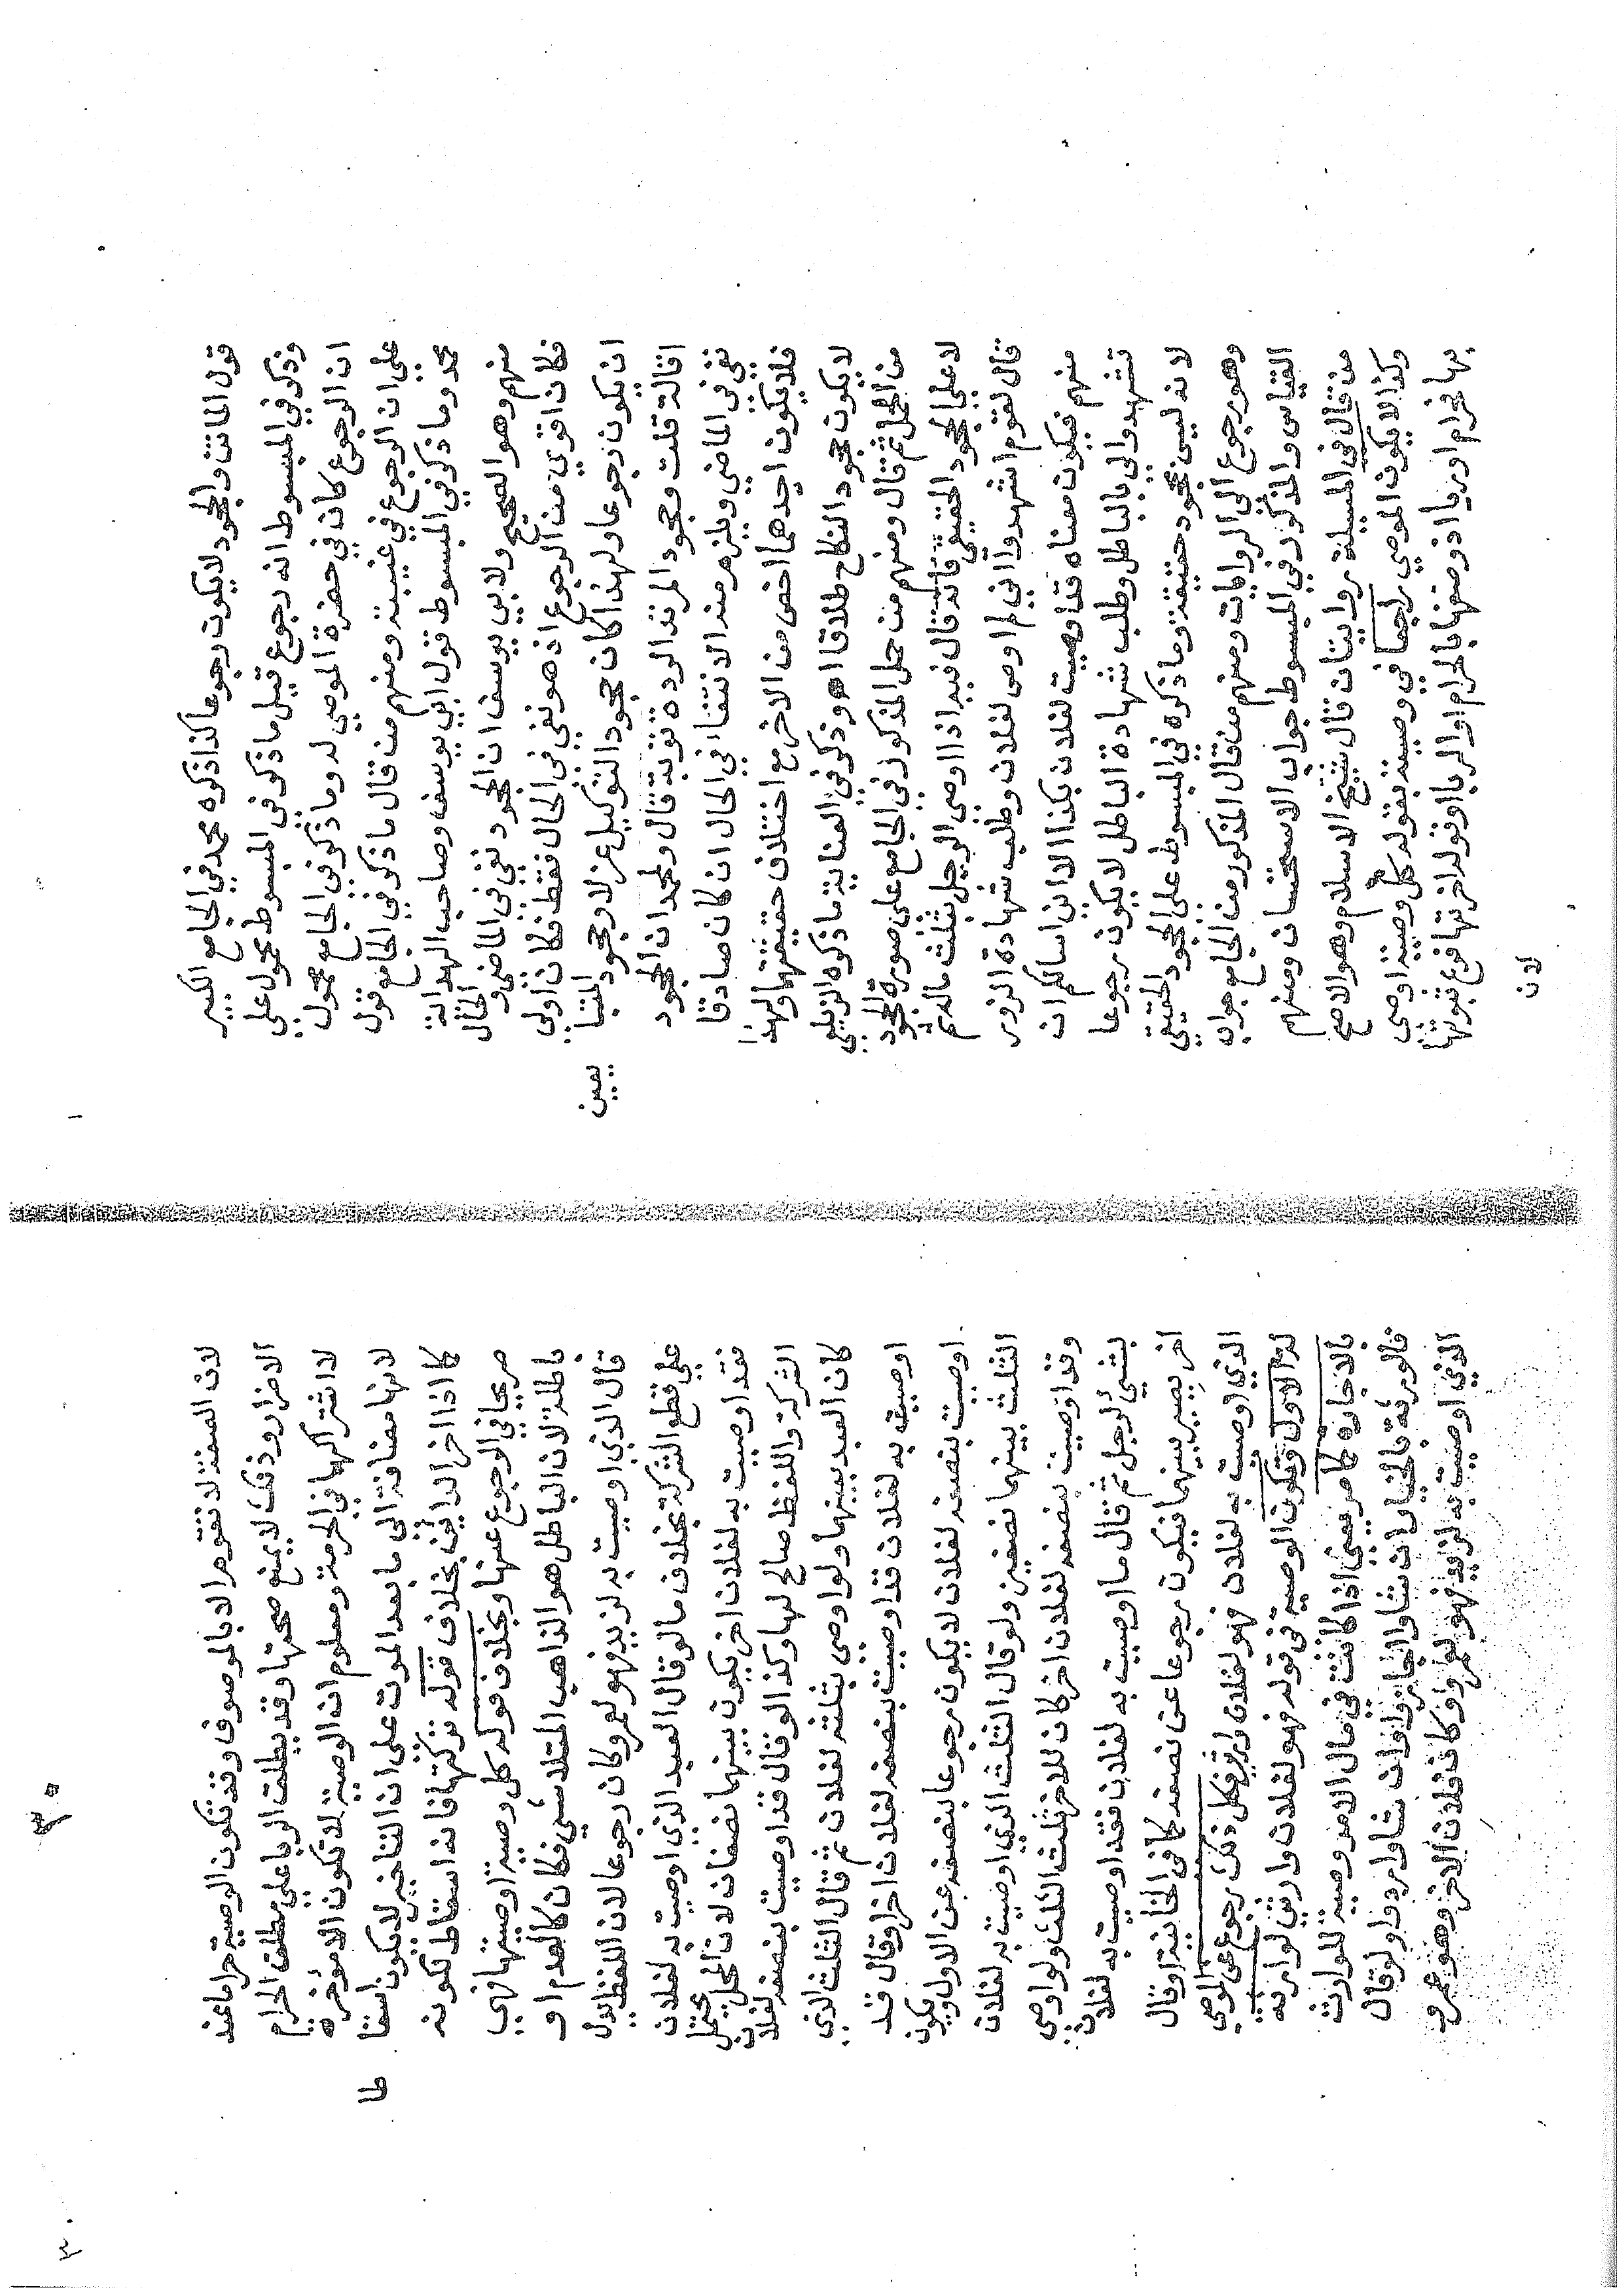 قول الماتن والجحود لا يكون رجوعا كذا ذكره محمد في الجامع الكبير
وذكر في المبسوط انه رجوع قيل ما ذكر في المبسوط محمول على
ان الرجوع كان في حضرة الموصي له وما ذكر في الجامع محمول
على ان الرجوع في غيبته ومنهم من قال ما ذكر في الجامع قول
محمد وما ذكر في المبسوط قول ابي يوسف وصاحب الهداية
منهم وهو الصحيح ولابي يوسف ان الجحود نفي في الماضي والحال
فكان اقوي من الرجوع اذ هو نفي في الحال فقط فكان اولى
ان يكون رجوعا ولهذا كان جحود التوكيل عزلا وجحود المتبا
يعين
اقالة قلت وجحود المرتد الردة توبة قال ولمحمد ان الجحود
نفي في الماضي ويلزم منه الانتفاء في الحال ان كان صادقا
فلا يكون احدهما اخص من الاخر مع اختلاف حقيقتهما ولهذا
لا يكون جحود النكاح طلاقا اه وذكر في العناية ما ذكره الزيلعي
من المحمل ثم قال ومنهم من حمل المذكور في الجامع على صورة الجحود
لا على الجحود الحقيقي فانه قال فيه اذا اوصى الرجل بثلث ماله ثم
قال لقوم اشهدوا اني لم اوص لفلان وطلب شهادة الزور
منهم فيكون معناه قد اوصيت لفلان بكذا الا اني اسالكم ان
تشهدوا لي بالباطل وطلب شهادة الباطل لا يكون رجوعا
لانه ليس بجحود حقيقة وما ذكره في المبسوط على الجحود الحقيقي
وهو رجوع في الروايات ومنهم من قال المذكور من الجامع جواب
القياس والمذكور في المبسوط جواب الاستحسان ومنهم
من قال في المسيلة روايتان قال شيخ الاسلام وهو الاصح
وكذا لا يكون الموصي راجعا في وصيته بقوله كل وصية اوصى
بها فحرام او ربا اذ وصفها بالحرام او الربا او قوله اخرتها فرع ثبوتها
لان
لان الصفة لا تقوم الا بالموصوف وقد تكون الوصية حراما عند
الاضرار وذلك لا يمنع صحتها وقد يطلق الربا على مطلق الحرام
لاشتراكهما في الحرمة ومعلوم ان الوصية لا تكون الا مؤخرة
لانها مضافة الى ما بعد الموت على ان التاخير لا يكون اسقا
طا
كما اذا اخر الداين بخلاف قوله تركتها فانه اسقاط لكونه
صريحا في الرجوع عنها وبخلاف قوله كل وصية اوصيتها فهي
باطلة لان الباطل هو الذاهب المتلاشي فكان كالعدم او
قال الذي اوصيت به لزيد فهو لعمرو كان رجوعا لان اللفظ يدل
على قطع الشركة بخلاف ما لو قال العبد الذي اوصيت به لفلان
فقد اوصيت به لفلان اخر يكون بينهما نصفان لان المحل يحتمل
الشركة واللفظ صالح لها وكذا لو قال قد اوصيت بنصفه لفلان
كان العبد بينهما ولو اوصى بثلثه لفلان ثم قال الثلث الذي
اوصيت به لفلان قد اوصيت بنصفه لفلان اخر او قال قد
اوصيت بنصفه لفلان لا يكون رجوعا بنصفه عن الاول ويكون
الثلث بينهما نصفين ولو قال الثلث الذي اوصيت به لفلان
وقد اوصيت بنصفه لفلان اخر كان للاخر ثلث الثلث ولو اوصى
بشيئ لرجل ثم قال ما اوصيت به لفلان فقد اوصيت به لفلان
اخر يصير بينهما فيكون رجوعا عن نصفه كما في الخانية او قال
الذي اوصيت به لفلان فهو لفلان وارثي فكل ذلك رجوع عن الموصى
له الاول وتكون الوصية في قوله فهو لفلان وارثي لوارثه
بالاجازة كما مر يعني اذا كانت في مال الامر وصية للوارث
فالورثة بالخيار ان شاوا اجازوا وان شاوا ردوا ولو قال
الذي اوصيت به لزيد فهو لعمرو او كان فلان الاخر وهو عمرو